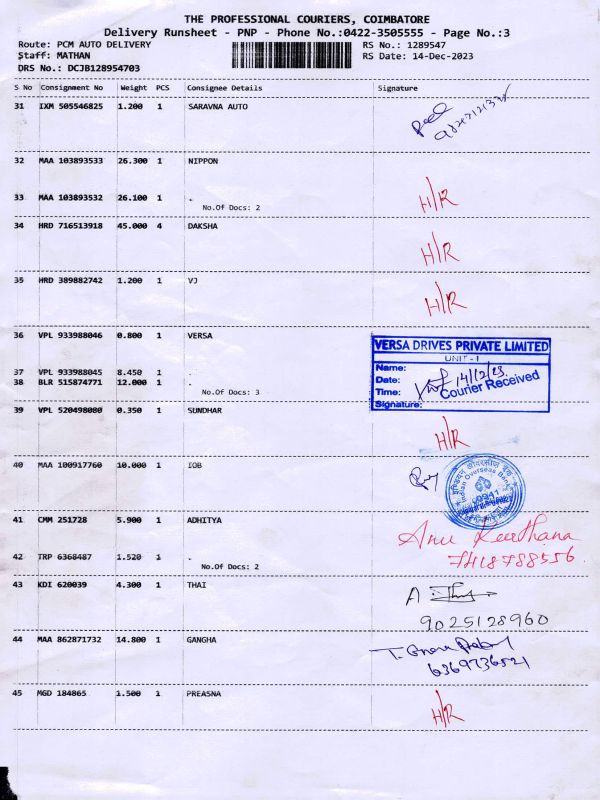 THE PROFESSIONAL COURIERS, COIMBATORE
Delivery Runsheet - PNP - Phone No.:0422-3505555 - Page No.:3
Route: PCM AUTO DELIVERY RS No.: 1289547
Staff: MATHAN RS Date: 14-Dec-2023
DRS No.: DCJB128954703
S No Consignment No Weight PCS Consignee Details Signature
31 IXM 505546825 1.200 1 SARAVNA AUTO
32 MAA 103893533 26.300 1 NIPPON
33 MAA 103893532 26.100 1 .
No.Of Docs: 2
H/R
34 HRD 716513918 45.000 4 DAKSHA
H/R
35 HRD 389882742 1.200 1 VJ
H/R
36 VPL 933988046 0.800 1 VERSA
VERSA DRIVES PRIVATE LIMITED
UNIT-1
Name:
Date: 14/12/23
Time: Courier Received
Signature:
37 VPL 933988045 8.450 1 .
38 BLR 515874771 12.000 1 .
No.Of Docs: 3
39 VPL 520498080 0.350 1 SUNDHAR
H/R
40 MAA 100917760 10.000 1 IOB
इण्डियन ओवरसीज़ बैंक
Indian Overseas Bank
41 CMM 251728 5.900 1 ADHITYA
Anu Keerthana
7418788556
42 TRP 6368487 1.520 1 .
No.Of Docs: 2
43 KDI 620039 4.300 1 THAI
9025128960
44 MAA 862871732 14.800 1 GANGHA
6369736521
45 MGD 184865 1.500 1 PREASNA
H/R